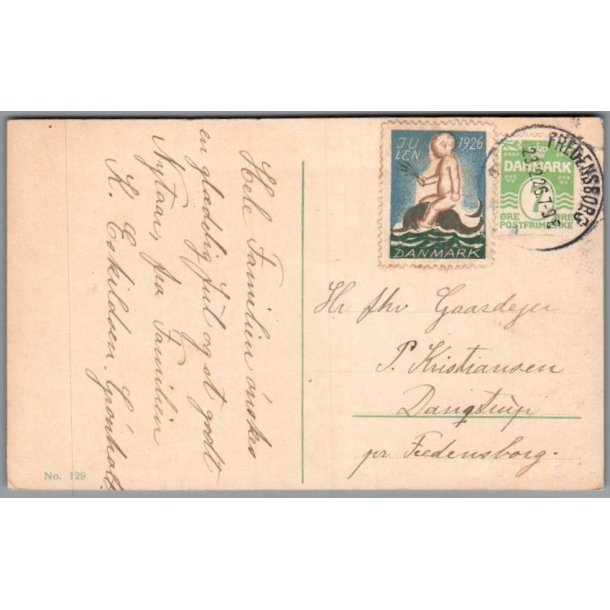 Hele Familien ønskes
en glædelig Jul og et godt
Nytaar, fra Familien
K. Eskildsen. Grønholt
No. 129
JU 1926
LEN
DANMARK
DANMARK
7
ØRE
POSTFRIMÆRKE
FREDENSBORG
Hr fhv Gaardejer
P. Kristiansen
Dangtrup
pr Fredensborg.